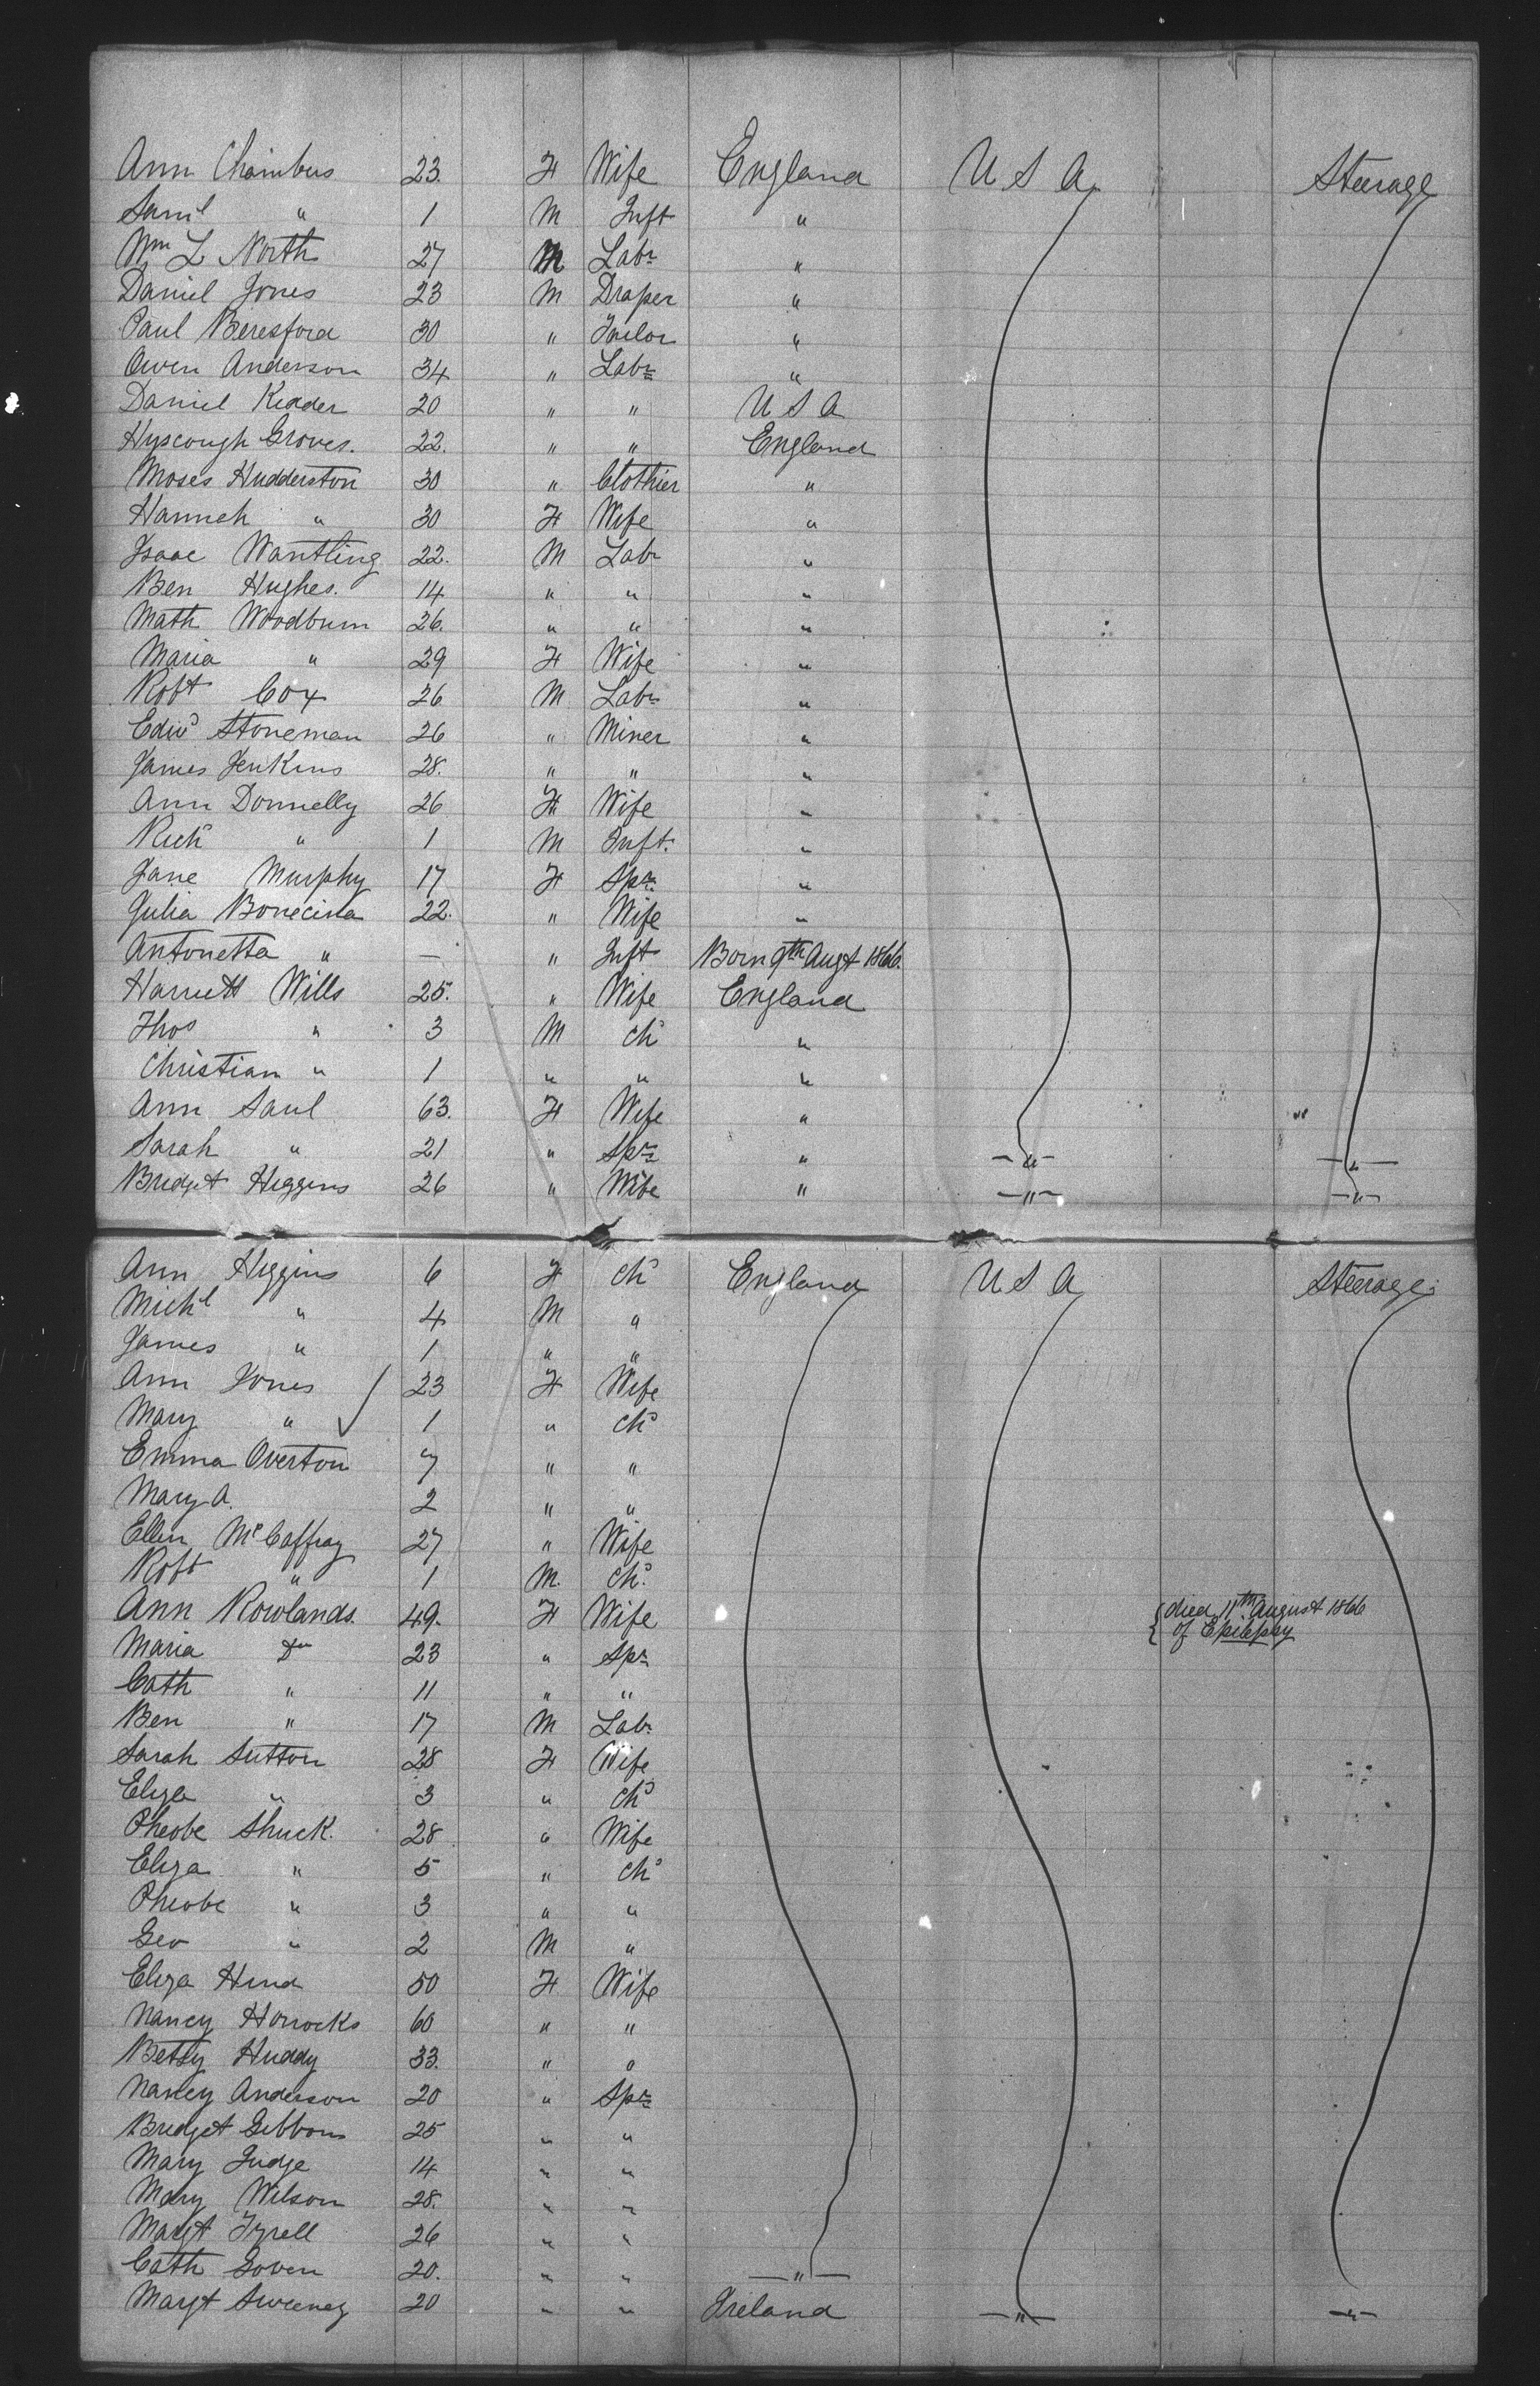 Ann Chambers 23. F Wife England U S A Steerage
Saml " 1 M Inft "
Wm L North 27 M Labr "
Daniel Jones 23 M Draper "
Paul Beresford 30 " Tailor "
Owen Anderson 34 " Labr "
Daniel Kidder 20 " " U S A
Hyscough Groves. 22. " " England
Moses Hudderston 30 " Clothier "
Hannah " 30 F Wife "
Isaac Wantling 22. M Labr "
Ben Hughes. 14 " " "
Math Woodburn 26. " " "
Maria " 29 F Wife "
Robt Cox 26 M Labr "
Edwd Stoneman 26 " Miner "
James Jenkins 28. " " "
Ann Donnelly 26 F Wife "
Richd " 1 M Inft. "
Jane Murphy 17 F Spr. "
Julia Bonecina 22. " Wife "
Antonetta " — " Inft Born 9th Augt 1866.
Harriett Wills 25. " Wife England
Thos " 3 M chd "
Christian " 1 " " "
Ann Saul 63. F Wife "
Sarah " 21 " Spr " —"— —"—
Bridget Higgins 26 " Wife " —"— —"—
Ann Higgins 6 F chd England U S A Steerage
Michl " 4 M "
James " 1 " "
Ann Jones 23 F Wife
Mary " 1 " chd
Emma Overton 7 " "
Mary A. 2 " "
Ellen McCaffray 27 " Wife
Robt " 1 M. chd.
Ann Rowlands. 49. F Wife died 11th August 1866
of Epilepsy
Maria Do 23 " Spr
Cath " 11 " "
Ben " 17 M Labr
Sarah Sutton 28 F Wife
Eliza " 3 " chd
Pheobe Shuck. 28 " Wife
Eliza " 5 " chd
Pheobe " 3 " "
Geo " 2 M "
Eliza Hind 50 F Wife
Nancy Horrocks 60 " "
Betsy Huddy 33. " "
Nancy Anderson 20 " Spr
Bridget Gibbons 25 " "
Mary Judge 14 " "
Mary Wilson 28. " "
Margt Tyrell 26 " "
Cath Goven 20. " " —"—
Margt Sweeney 20 " " Ireland —"— —"—